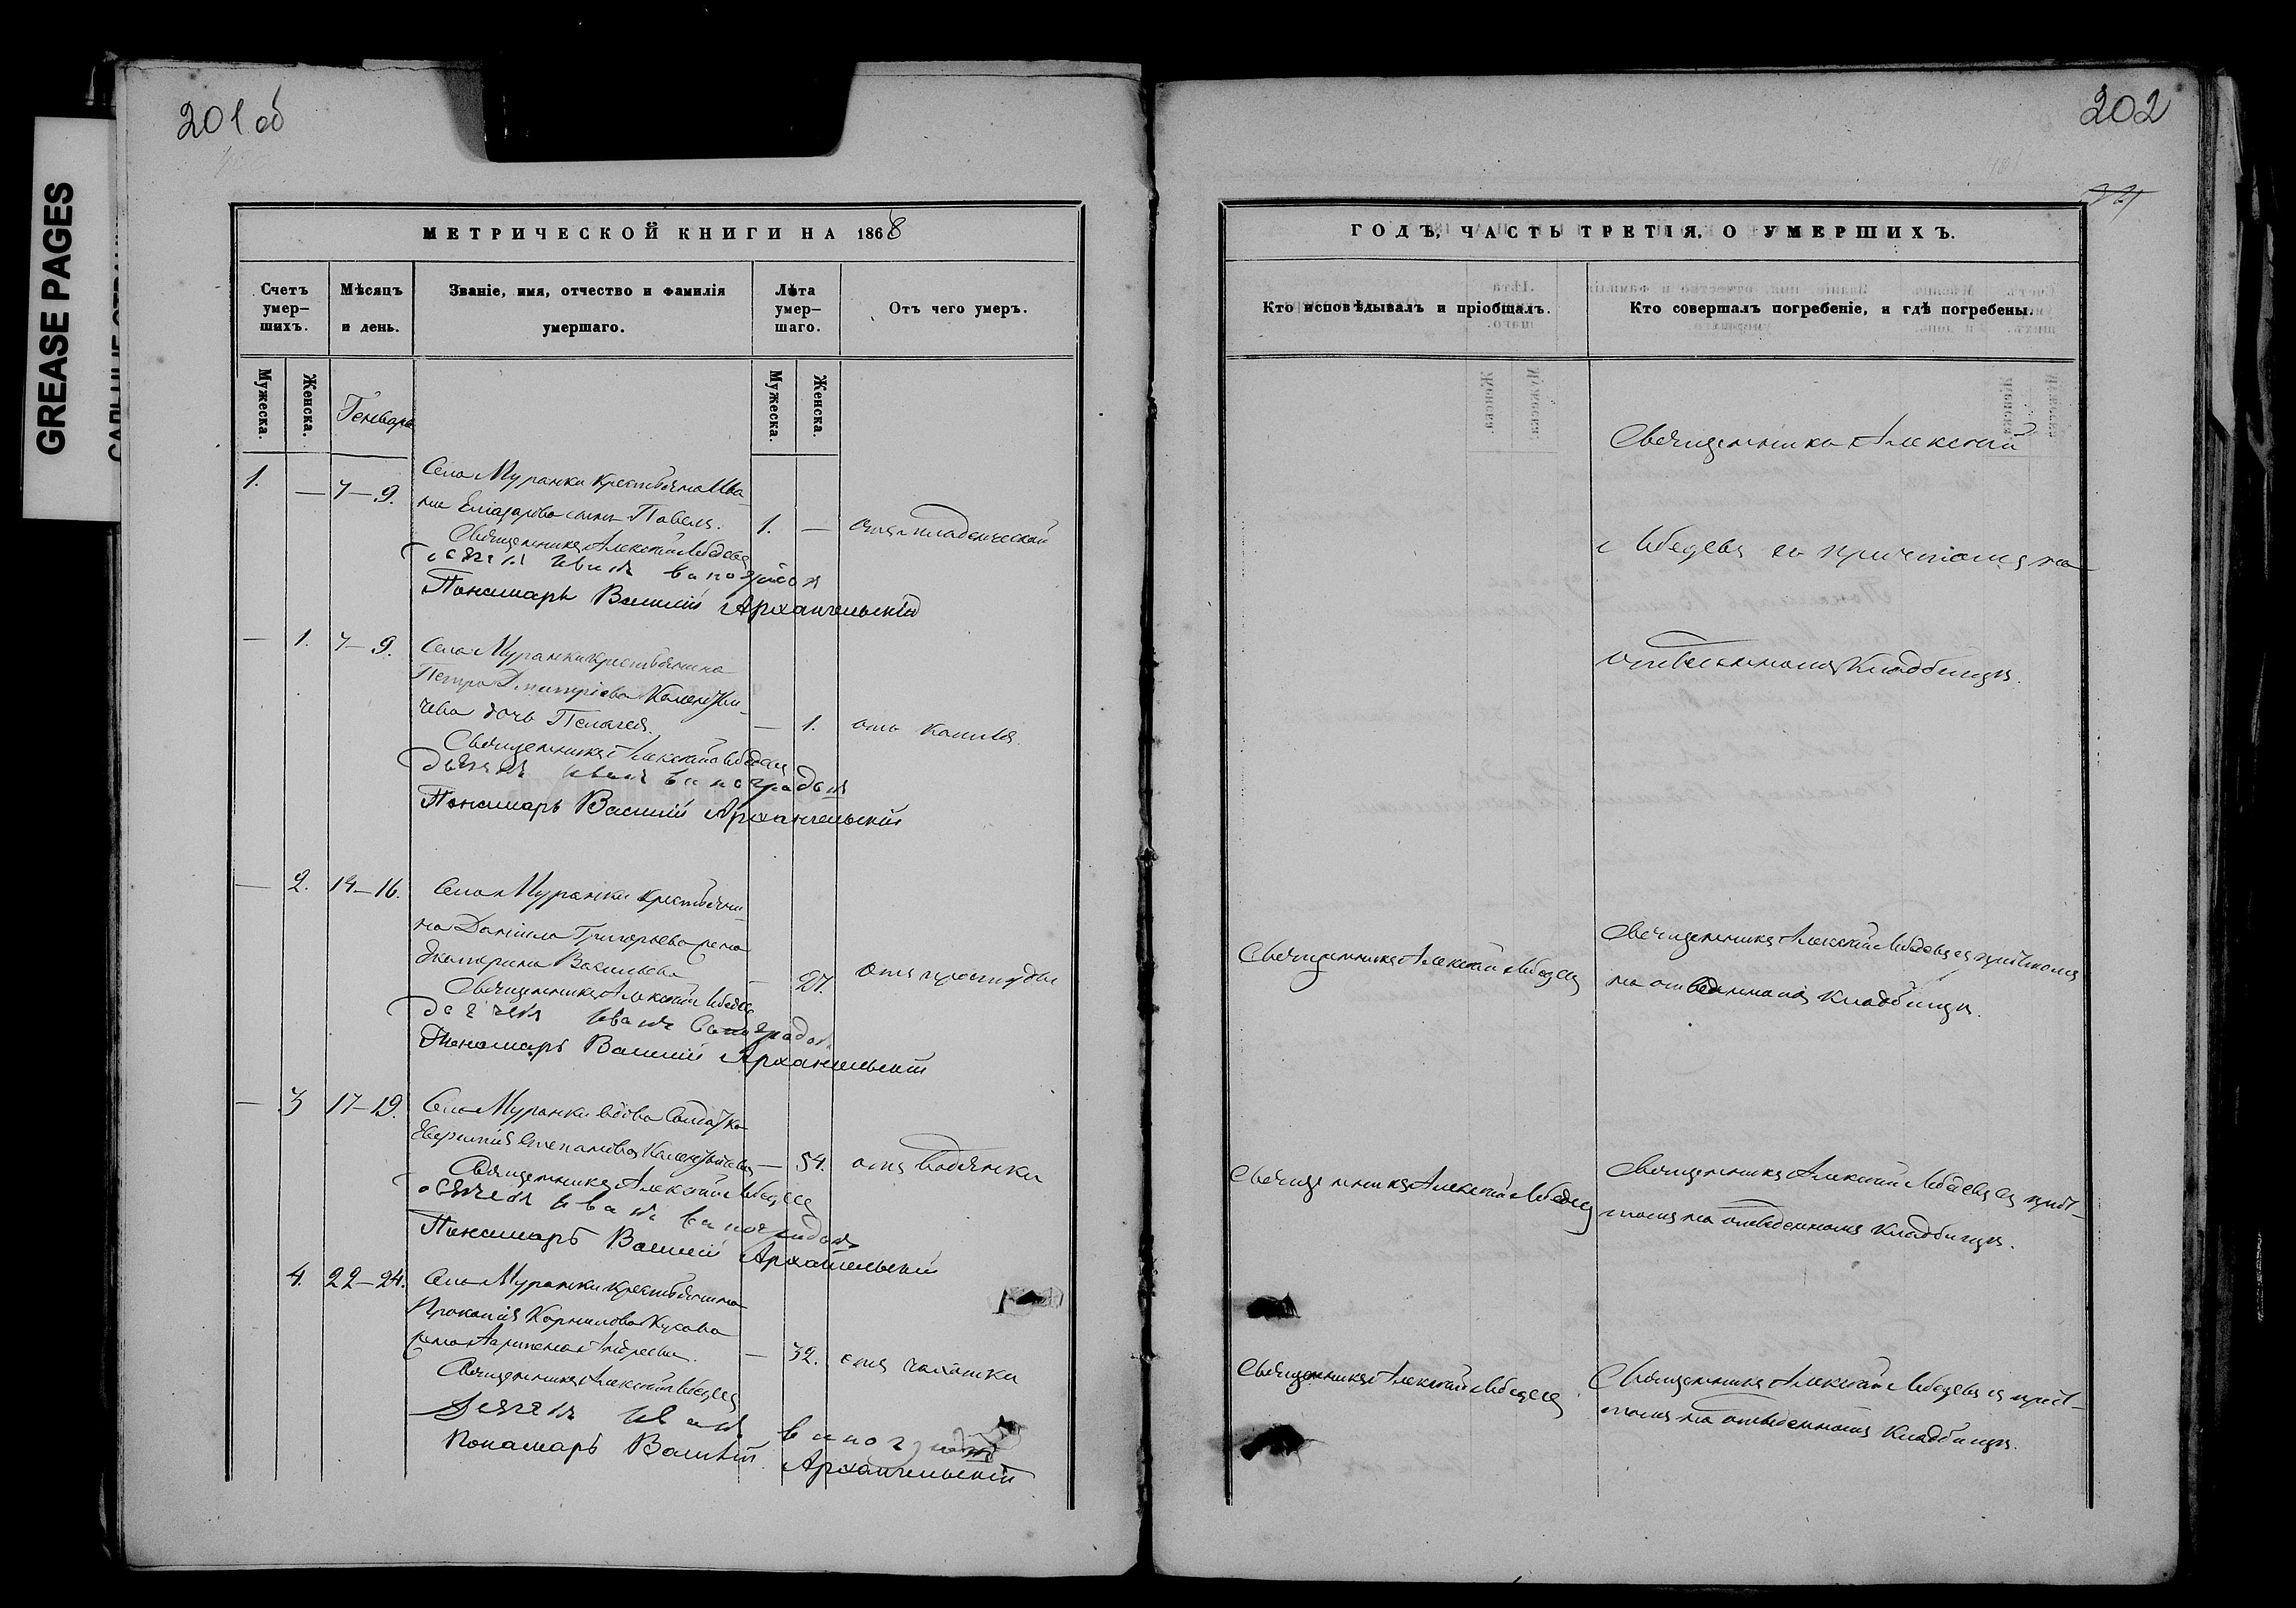 201 об
GREASE PAGES
МЕТРИЧЕСКОЙ КНИГИ НА 1868
Счетъ умер-шихъ.
Мѣсяцъ и день.
Званіе, имя, отчество и фамилія умершаго.
Лѣта умер-шаго.
Отъ чего умеръ.
Мужеска.
Женска.
Генварь
Мужеска.
Женска.
1. — 7—9. Села Муранки крестьянина Ива-
на Елиазарова сынъ Павелъ. 1. — отъ младенческой
Священникъ Алексѣй Лебедевъ
Иванъ Виноградовъ
Пономарь Василій Архангельскій
— 1. 7—9. Села Муранки крестьянина
Петра Димитріева
чева дочь Пелагея. — 1. отъ кашля.
Священникъ Алексѣй Лебедевъ
Дьячекъ Иванъ Виноградовъ
Пономарь Василій Архангельскій
— 2. 14—16. Села Муранки крестьяни-
на Даніила Григорьева жена
Екатерина Васильева — 27. отъ простуды
Священникъ Алексѣй Лебедевъ
Дьячекъ Иванъ Виноградовъ
Пономарь Василій Архангельскій
— 3 17—19. Села Муранки вдова Солдатка
Степанова — 54. отъ водянки
Священникъ Алексѣй Лебедевъ
Иванъ Виноградовъ
Пономарь Василій Архангельскій
4. 22—24. Села Муранки крестьянина
Прокопія Корнилова
жена Агрипена Андреева. — 32. отъ чахотки
Священникъ Алексѣй Лебедевъ
Дьячекъ Иванъ Виноградовъ
Пономарь Василій Архангельскій
202
ГОДЪ, ЧАСТЬ ТРЕТІЯ, О УМЕРШИХЪ.
Кто исповѣдывалъ и пріобщалъ.
Кто совершалъ погребеніе, и гдѣ погребены.
Священникъ Алексѣй
Лебедевъ съ причтомъ на
отведенномъ Кладбищѣ.
Священникъ Алексѣй Лебедевъ
Священникъ Алексѣй Лебедевъ съ причтомъ
на отведенномъ Кладбищѣ.
Священникъ Алексѣй Лебедевъ
Священникъ Алексѣй Лебедевъ съ прич-
томъ на отведенномъ Кладбищѣ.
Священникъ Алексѣй Лебедевъ
Священникъ Алексѣй Лебедевъ съ прич-
томъ на отведенномъ Кладбищѣ.